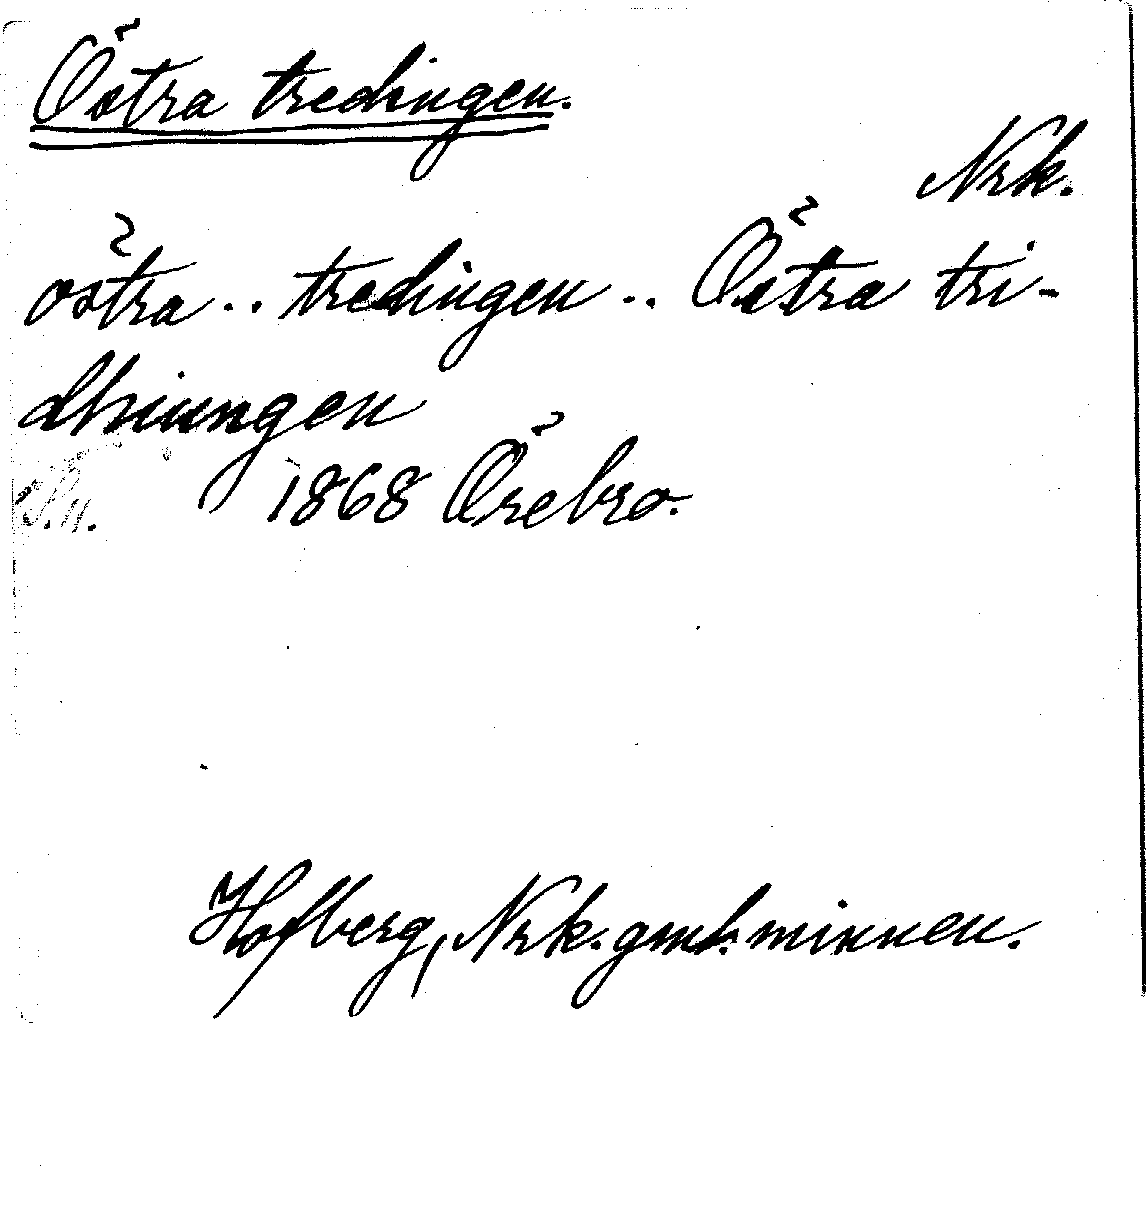 Östra tredingen.
Nrk.
östra .. tredingen .. Östra tri-
dhiungen
S. 11. 1868 Örebro.
Hofberg, Nrk. gml. minnen.